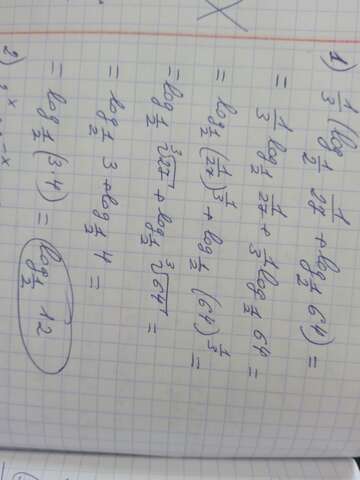 1) 1/3 (log_{1/2} 1/27 + log_{1/2} 64) =
= 1/3 log_{1/2} 1/27 + 1/3 log_{1/2} 64 =
= log_{1/2} (1/27)^{1/3} + log_{1/2} (64)^{1/3} =
= log_{1/2} ∛27 + log_{1/2} ∛64 =
= log_{1/2} 3 + log_{1/2} 4 =
= log_{1/2} (3·4) = log_{1/2} 12
2)